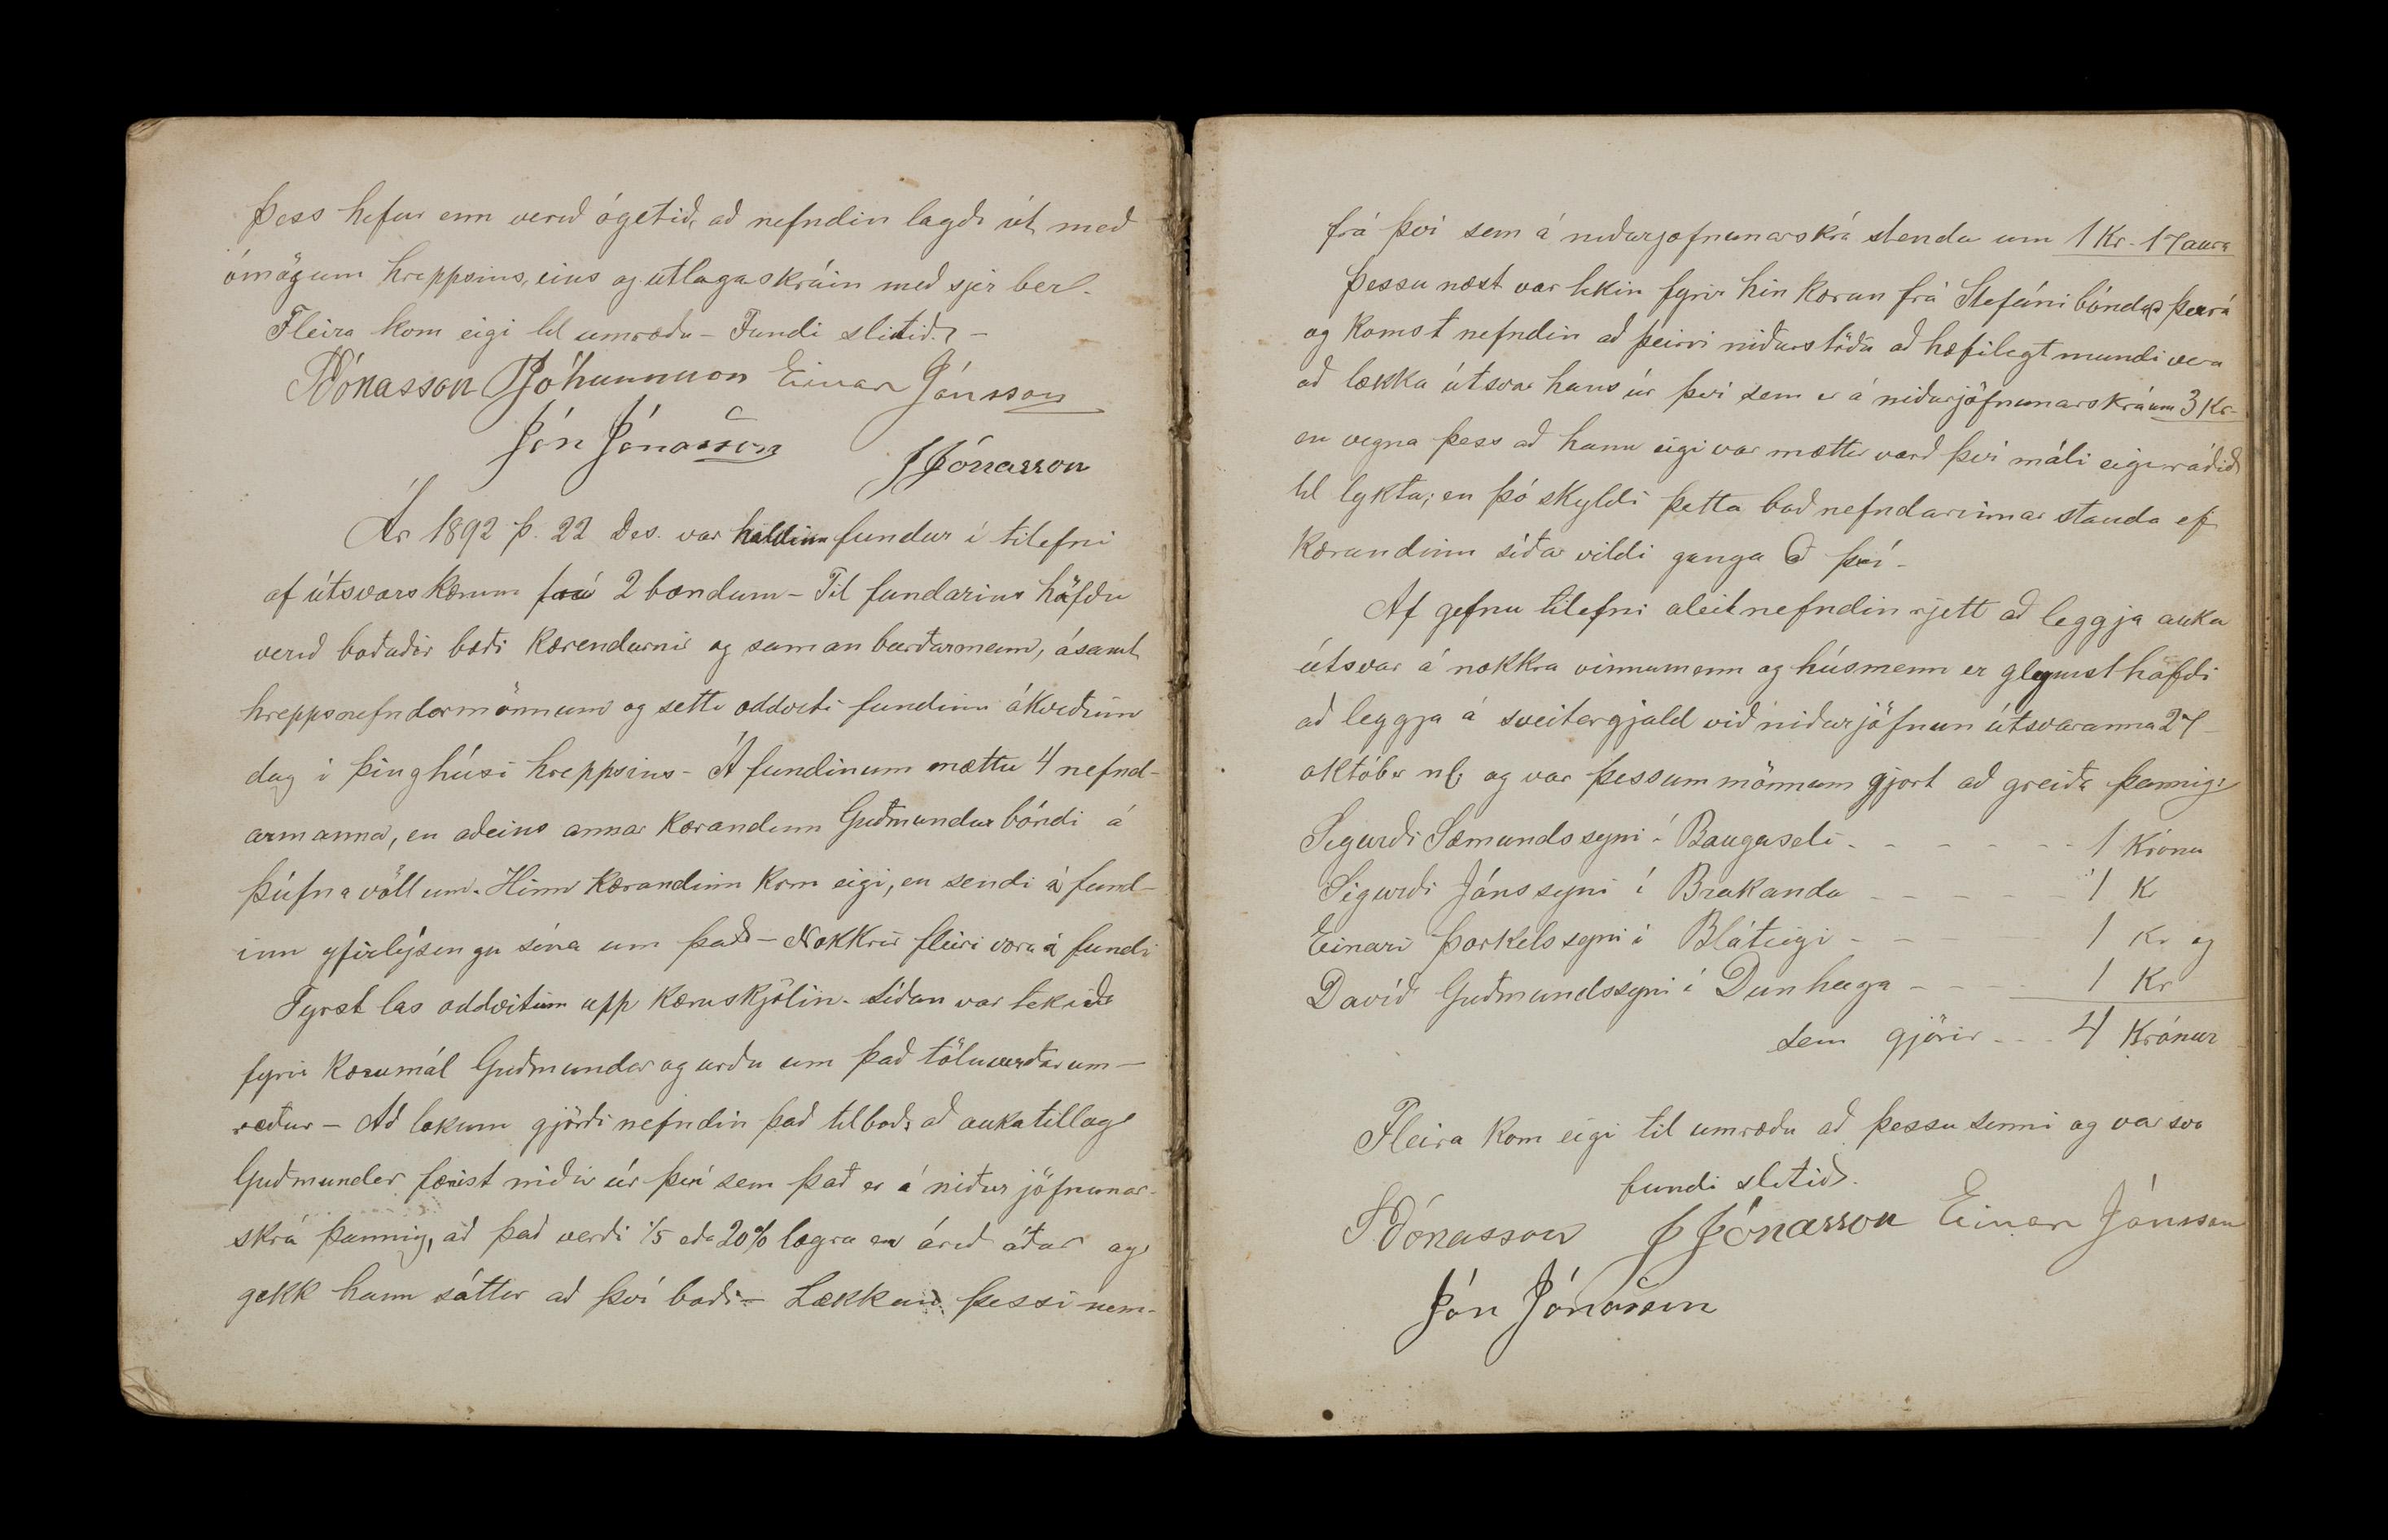 Þess hefur enn verið ógetið, að nefndin lagði út með
ómögum hreppsins, eins og útlagaskráin með sjer ber.
Fleira kom eigi til umræðu – Fundi slitið. –
Jónasson Jóhannsson Einar Jónsson
Jón Jónasson JJónasson
Ár 1892 þ. 22 Des. var haldinn fundur í tilefni
af útsvarskærum frá 2 bændum – Til fundarins höfðu
verið boðaðir bæði kærendurnir og samanburðarmenn, ásamt
hreppsnefndarmönnum og setti oddviti fundinn ákveðinn
dag í þinghúsi hreppsins – Á fundinum mættu 4 nefnd-
armanna, en aðeins annar kærandinn Guðmundur bóndi á
Þúfnavöllum. Hinn kærandinn kom eigi, en sendi á fund-
inn yfirlýsingu sína um það – Nokkrir fleiri voru á fundi
Fyrst las oddvitinn upp kæruskjölin. Síðan var tekið
fyrir kærumál Guðmundar og urðu um það töluverðar um-
ræður – Að lokum gjörði nefndin það tilboð, að aukatillag
Guðmundar færist niður úr því sem það er á niðurjöfnunar-
skrá þannig, að það verði 1/5 eða 20% lægra en árið áður og
gekk hann sáttur að því boði – Lækkun þessi nem-
frá því sem á niðurjöfnunarskrá stendur um 1 Kr. 17 aura
Þessu næst var tekin fyrir hin kæran frá Stefáni bónda á Þverá
og komst nefndin að þeirri niðurstöðu að hæfilegt mundi vera
að lækka útsvar hans úr því sem er á niðurjöfnunarskrá um 3 Kr-
en vegna þess að hann eigi var mættur varð því máli eigi ráðið
til lykta; en þó skyldi þetta boð nefndarinnar standa ef
kærandinn síðar vildi ganga að því –
Af gefnu tilefni áleit nefndin rjett að leggja auka
útsvar á nokkra vinnumenn og húsmenn er gleymst hafði
að leggja á sveitargjald við niðurjöfnun útsvaranna 27
október nl. og var þessum mönnum gjört að greiða þannig:
Sigurði Sæmundssyni í Baugaseli - - - - - - 1 Krónu
Sigurði Jónssyni í Brakanda - - - - - 1 Kr
Einari Þorkelssyni í Bláteigi - - 1 Kr og
Davíð Guðmundssyni í Dunhaga - - - 1 Kr
sem gjörir - - - 4 Krónur
Fleira kom eigi til umræðu að þessu sinni og var svo
fundi slitið.
Jónasson JJónasson Einar Jónsson
Jón Jónasson